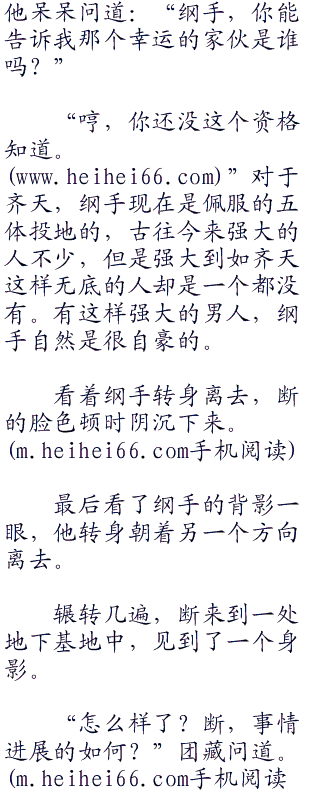 他呆呆问道：“纲手，你能
告诉我那个幸运的家伙是谁
吗？”
“哼，你还没这个资格
知道。
(www.heihei66.com)”对于
齐天，纲手现在是佩服的五
体投地的，古往今来强大的
人不少，但是强大到如齐天
这样无底的人却是一个都没
有。有这样强大的男人，纲
手自然是很自豪的。
看着纲手转身离去，断
的脸色顿时阴沉下来。
(m.heihei66.com手机阅读)
最后看了纲手的背影一
眼，他转身朝着另一个方向
离去。
辗转几遍，断来到一处
地下基地中，见到了一个身
影。
“怎么样了？断，事情
进展的如何？”团藏问道。
(m.heihei66.com手机阅读